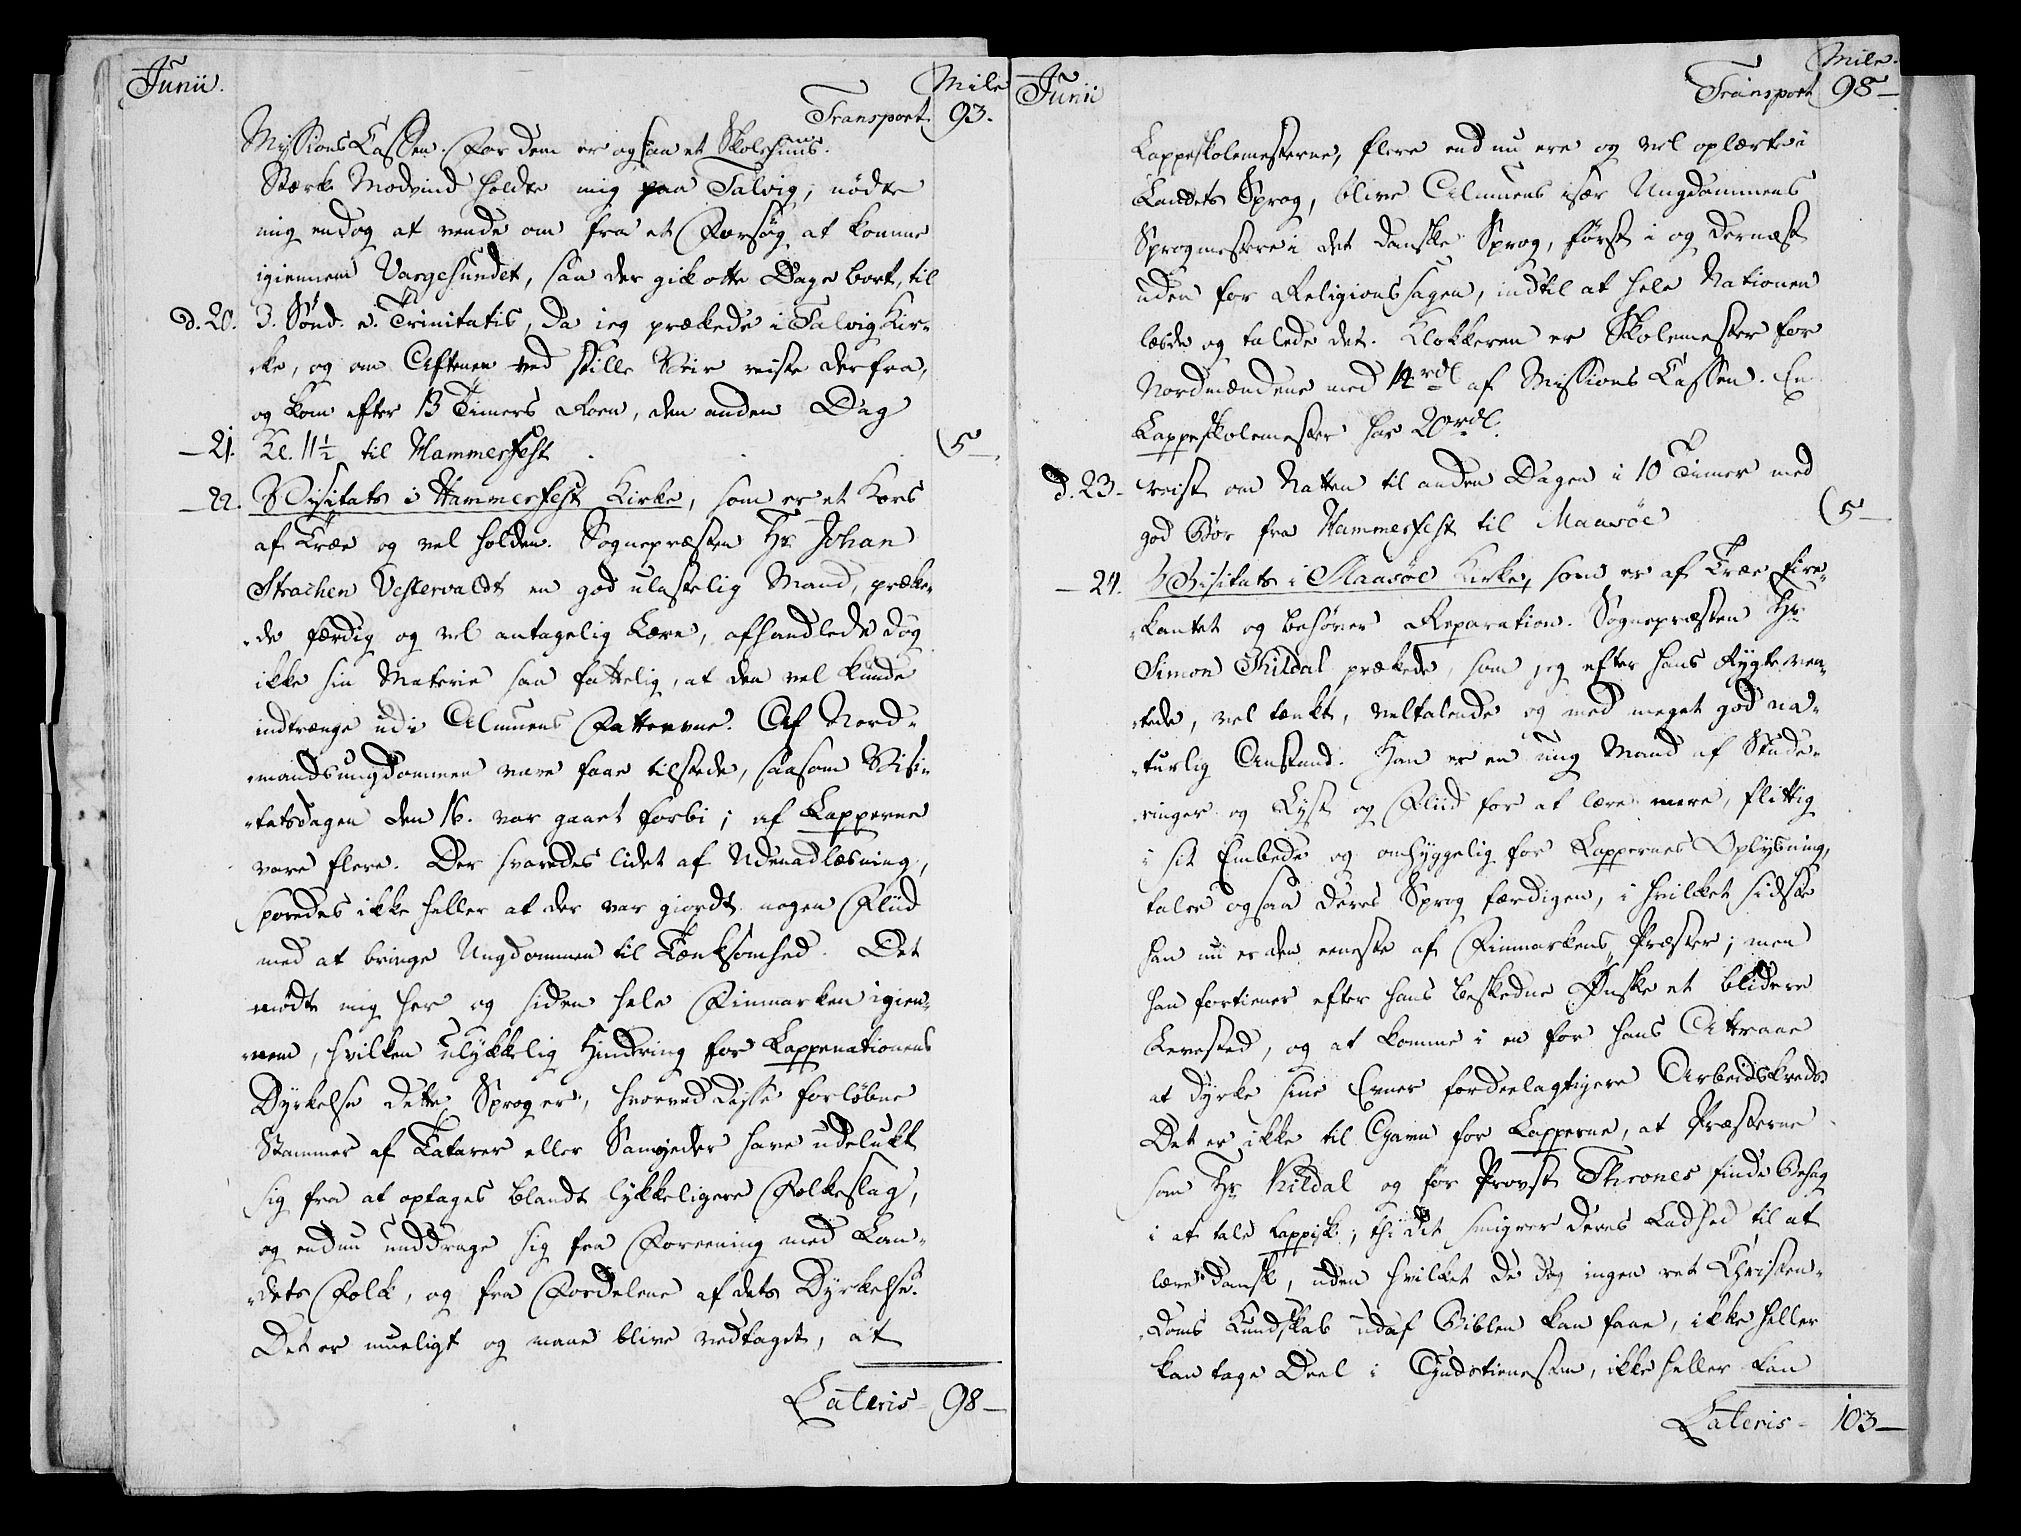 Junii.
Mile
Transport 93.
Missions Cassen. For dem er ogsaa et Skolehuus.
Stærk Modvind holdte mig paa Talvig, nödte
mig endog at vende om fra et Forsög at komme
igiennem Vargesundet, saa der gik otte Dage bort, til
d. 20. 3. Sönd. e. Trinitatis, da ieg prækede i Talvig Kir-
ke, og om Aftenen ved stille Veir reiste derfra,
og kom efter 13 Timers Roen, den anden Dag
- 21. Kl. 11½ til Hammerfest . . . 5 -
- 22. Visitats i Hammerfest Kirke, som er et Kors
af Træe og vel holden. Sognepræsten Hr. Johan
Strachen Vestervaldt en god ulastelig Mand, præke-
-de færdig og vel antagelig Lære, afhandlede dog
ikke sin Materie saa fattelig, at den vel kunde
indtrænge udi Almuens Fatteevne. Af Nord-
-mandsungdommen vare faae tilstede, saasom Visi-
-tatsdagen den 16. var gaaet forbi; af Lapperne
vare flere. Der svaredes lidet af Udenadlæsning,
sporedes ikke heller at der var giordt nogen Fliid
med at bringe Ungdommen til Tænksomhed. Det
mödte mig her og siden hele Finmarken igien-
-nem, hvilken ulykkelig Hindring for Lappenationens
Dyrkelse dette Sprog er, hvorved disse forlöbne
Stammer af Tatarer eller Samojeder have udelukt
sig fra at optages blandt lykkeligere Folkeslag,
og endnu unddrage sig fra Foreening med Lan-
-dets Folk, og fra Fordelene af dets Dyrkelse.
Det er mueligt og maae blive vedtaget, at
Lateris - 98 -
Junii
Mile.
Transport 98 -
Lappeskolemesterne, flere end nu ere og vel oplærte i
Landets Sprog, blive Almuens især Ungdommens
Sprogmestere i det danske Sprog, först i og dernæst
uden for Religionssagen, indtil at hele Nationen
læsde og talede det. Klokkeren er Skolemester for
Nordmændene med 14 rdl af Missions Cassen. En
Lappeskolemester har 20 rdl.
d. 23 - reist om Natten til anden Dagen i 10 Timer med
god Bör fra Hammerfest til Maasöe 5 -
- 24. Visitats i Maasöe Kirke, som er af Træe fire-
-kantet og behöver Reparation. Sognepræsten Hr
Simon Kildal prækede, som jeg efter hans Rygte ven-
-tede, vel tænkt, veltalende og med meget god na-
-turlig Anstand. Han er en ung Mand af Stude-
-ringer og Lyst og Fliid for at lære mere, flittig
i sit Embede og omhyggelig for Lappernes Oplysning,
taler ogsaa deres Sprog færdigen, i hvilket sidste
han nu er den eeneste af Finmarkens Præster; men
han fortiener efter hans beskedne Ønske et blidere
Levested, og at komme i en for hans Attraae
at dyrke sine Evner fordeelagtigere Arbeidskreds
Det er ikke til Gavn for Lapperne, at Præsterne
som Hr Kildal og för Provst Thrones finde Behag
i at tale Lappisk; thi det smigrer deres Ladhed til at
lære dansk, uden hvilket de dog ingen ret Christen-
-doms Kundskab udaf Biblen kan faae, ikke heller
kan tage Deel i Gudstienesten, ikke heller kan
Lateris - 103 -